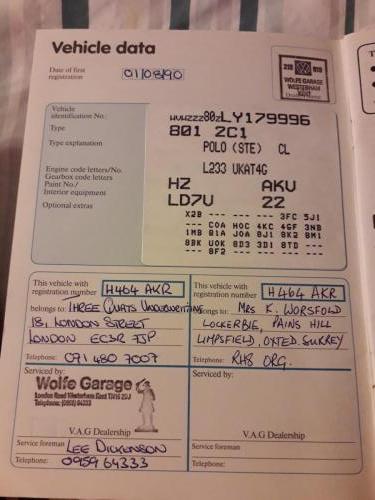 Vehicle data
Date of first
registration
01/08/90
218 819
WOLFE GARAGE
WESTERHAM
KENT
Vehicle
identification No.:
WVWZZZ80ZLY179996
Type
801 2C1
Type explanation
POLO (STE) CL
Engine code letters/No.
L233 UKAT4G
Gearbox code letters
HZ AKV
Paint No./
Interior equipment
LD7U 22
Optional extras
X2B --- --- --- --- 3FC 5J1
--- C0A H0C 4KC 4GF 3NB
1MB B1A J0A 8J1 9K2 8M1
8BK U0K 8D3 3D1 8TD ---
--- 8F2 --- --- --- ---
This vehicle with
registration number H464 AKR
belongs to: THREE QUAYS UNDERWRITING
18, LONDON STREET
LONDON EC3R 7JP
Telephone: 071 480 7007
This vehicle with
registration number H464 AKR
belongs to: MRS K. WORSFOLD
LOCKERBIE, PAINS HILL
LIMPSFIELD, OXTED. SURREY
Telephone: RH8 0RG.
Serviced by:
Wolfe Garage
London Road Westerham Kent TN16 2DJ
Telephone: (0959) 64333
V.A.G Dealership
Service foreman LEE DICKENSON
Telephone: 0959 64333
Serviced by:
V.A.G Dealership
Service foreman
Telephone: